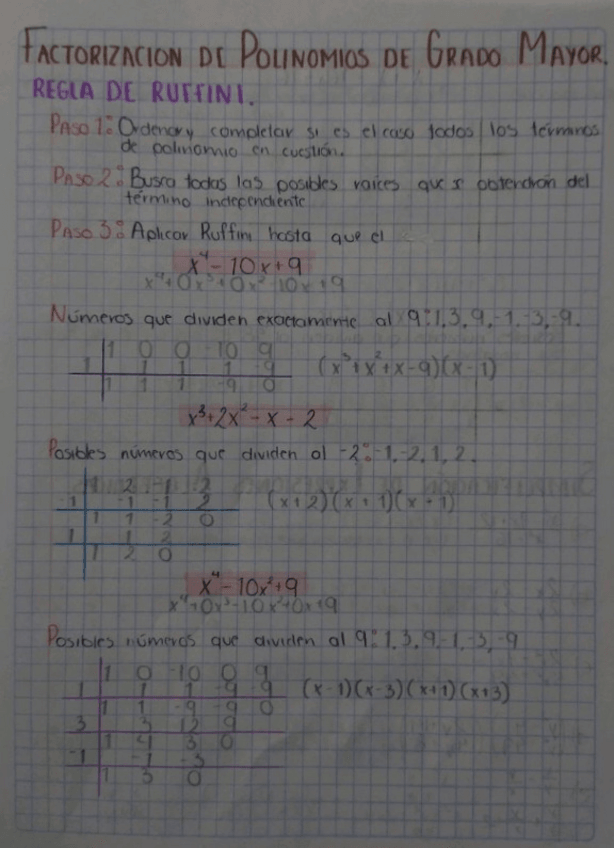 FACTORIZACION DE POLINOMIOS DE GRADO MAYOR.
REGLA DE RUFFINI.
PASO 1: Ordenar y completar si es el caso todos los términos
de polinomio en cuestión.
PASO 2: Busca todas las posibles raíces que se obtendrán del
término independiente
PASO 3: Aplicar Ruffini hasta que el
x⁴ - 10x + 9
x⁴ + 0x³ + 0x² - 10x + 9
Números que dividen exactamente al 9: 1, 3, 9, -1, -3, -9.
1 0 0 -10 9
1 1 1 1 -9 (x³ + x² + x - 9)(x - 1)
1 1 1 -9 0
x³ + 2x² - x - 2
Posibles números que dividen al -2: -1, -2, 1, 2.
2 -1 -2
-1 -1 -1 2 (x+2)(x+1)(x-1)
1 1 -2 0
1 1 2
1 2 0
x⁴ - 10x² + 9
x⁴ + 0x³ - 10x² + 0x + 9
Posibles números que dividen al 9: 1, 3, 9, -1, -3, -9
1 0 -10 0 9
1 1 1 -9 -9 (x-1)(x-3)(x+1)(x+3)
1 1 -9 -9 0
3 3 12 9
1 4 3 0
-1 -1 -3
1 3 0